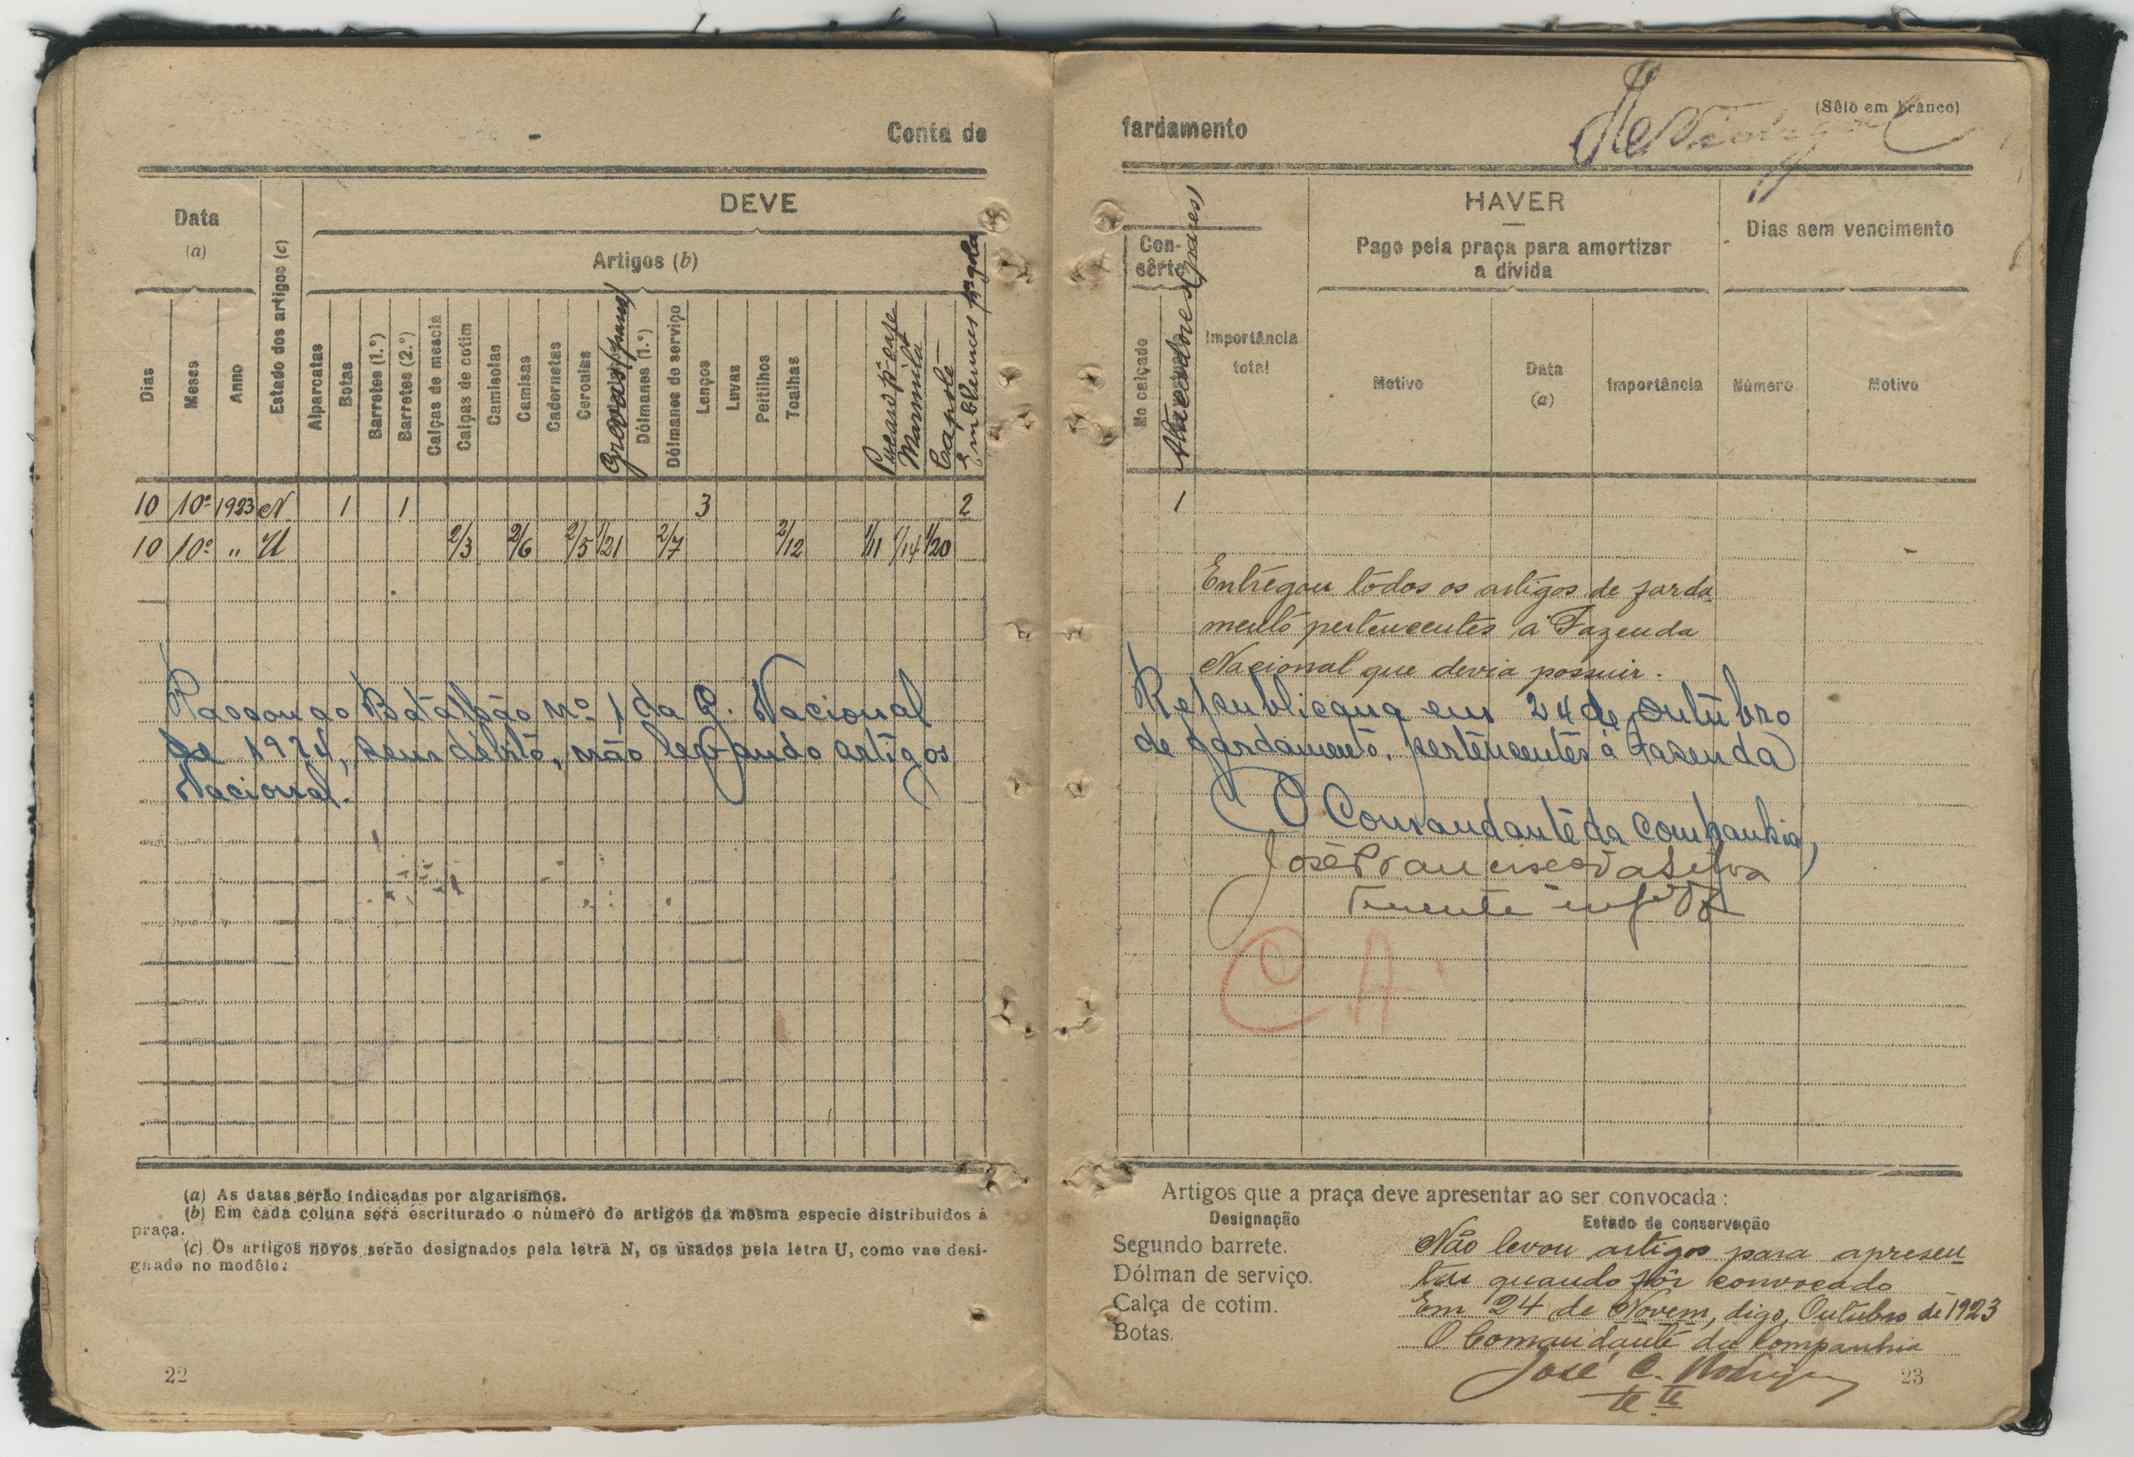 Conta de
DEVE
Data
(a)
Artigos (b)
Dias
Meses
Anno
Estado dos artigos (c)
Alparcatas
Botas
Barretes (1.º)
Barretes (2.º)
Calças de mescla
Calças de cotim
Camisolas
Camisas
Cadernetas
Ceroulas
Grevas (pares)
Dólmanes (1.º)
Dólmanes de serviço
Lenços
Luvas
Peitilhos
Toalhas
Marmita
Capote
Emblemas pª gola
10 10º 1923 N 1 1 3 2
10 10º " U 2/3 2/6 2/5 1/21 2/7 2/12 1/11 1/14 1/20
Passou ao Batalhão nº 1 da G. Nacional
de 1924, sem débito, não levando artigos
Nacional.
(a) As datas serão indicadas por algarismos.
(b) Em cada coluna será escriturado o número de artigos da mesma especie distribuidos á
praça.
(c) Os artigos novos serão designados pela letra N, os usados pela letra U, como vae desi-
gnado no modêlo.
22
fardamento
(Sêlo em branco)
HAVER
Con-
sêrto
Pago pela praça para amortizar
a dívida
Dias sem vencimento
No calçado
Atacadores (pares)
Importância
total
Motivo
Data
(a)
Importância
Número
Motivo
1
Entregou todos os artigos de farda
mento pertencentes á Fazenda
Nacional que devia possuir.
Republicana em 24 de Outubro
de fardamento, pertencentes á Fazenda
O Comandante da Companhia,
José Francisco da Silva
Tenente
C A
Artigos que a praça deve apresentar ao ser convocada :
Designação
Estado de conservação
Segundo barrete.
Dólman de serviço.
Calça de cotim.
Botas.
Não levou artigos para apresen
tar quando fôr convocado
Em 24 de Novem, digo, Outubro de 1923
O Comandante da Companhia
José C. Rodrigues
te te
23